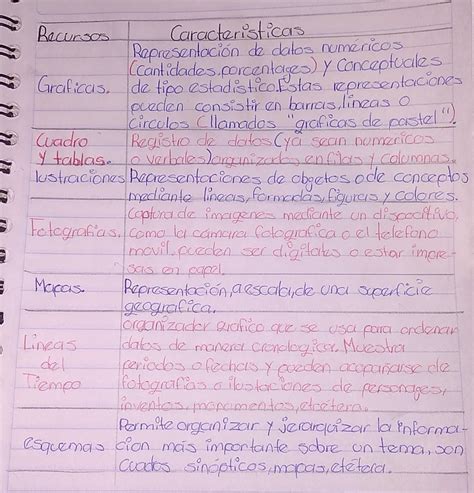 Recursos Caracteristicas
Representación de datos numéricos
(Cantidades, porcentages) y conceptuales
Graficas. de tipo estadistico. Estas representaciones
pueden consistir en barras, lineas o
Circulos (llamados "graficas de pastel").
Cuadro Registro de datos (ya sean numericos
y tablas. o verbales) organizados en filas y columnas.
Ilustraciones Representaciones de objetos o de conceptos
mediante lineas, formadas, figuras y colores.
Captura de imagenes mediante un dispocitivo,
Fotografias. como la camara fotografica o el telefono
movil. pueden ser digitales o estar impre-
sas en papel.
Mapas. Representación, a escala, de una superficie
geografica.
organizador grafico que se usa para ordenar
Lineas datos de manera cronologica. Muestra
del periodos o fechas y pueden acompañarse de
Tiempo fotografias o ilustaciones de personajes,
inventos, monumentos, etcétera.
Permite organizar y jerarquizar la informa-
esquemas cion más importante sobre un tema, son
Cuados sinópticos, mapas, etétera.